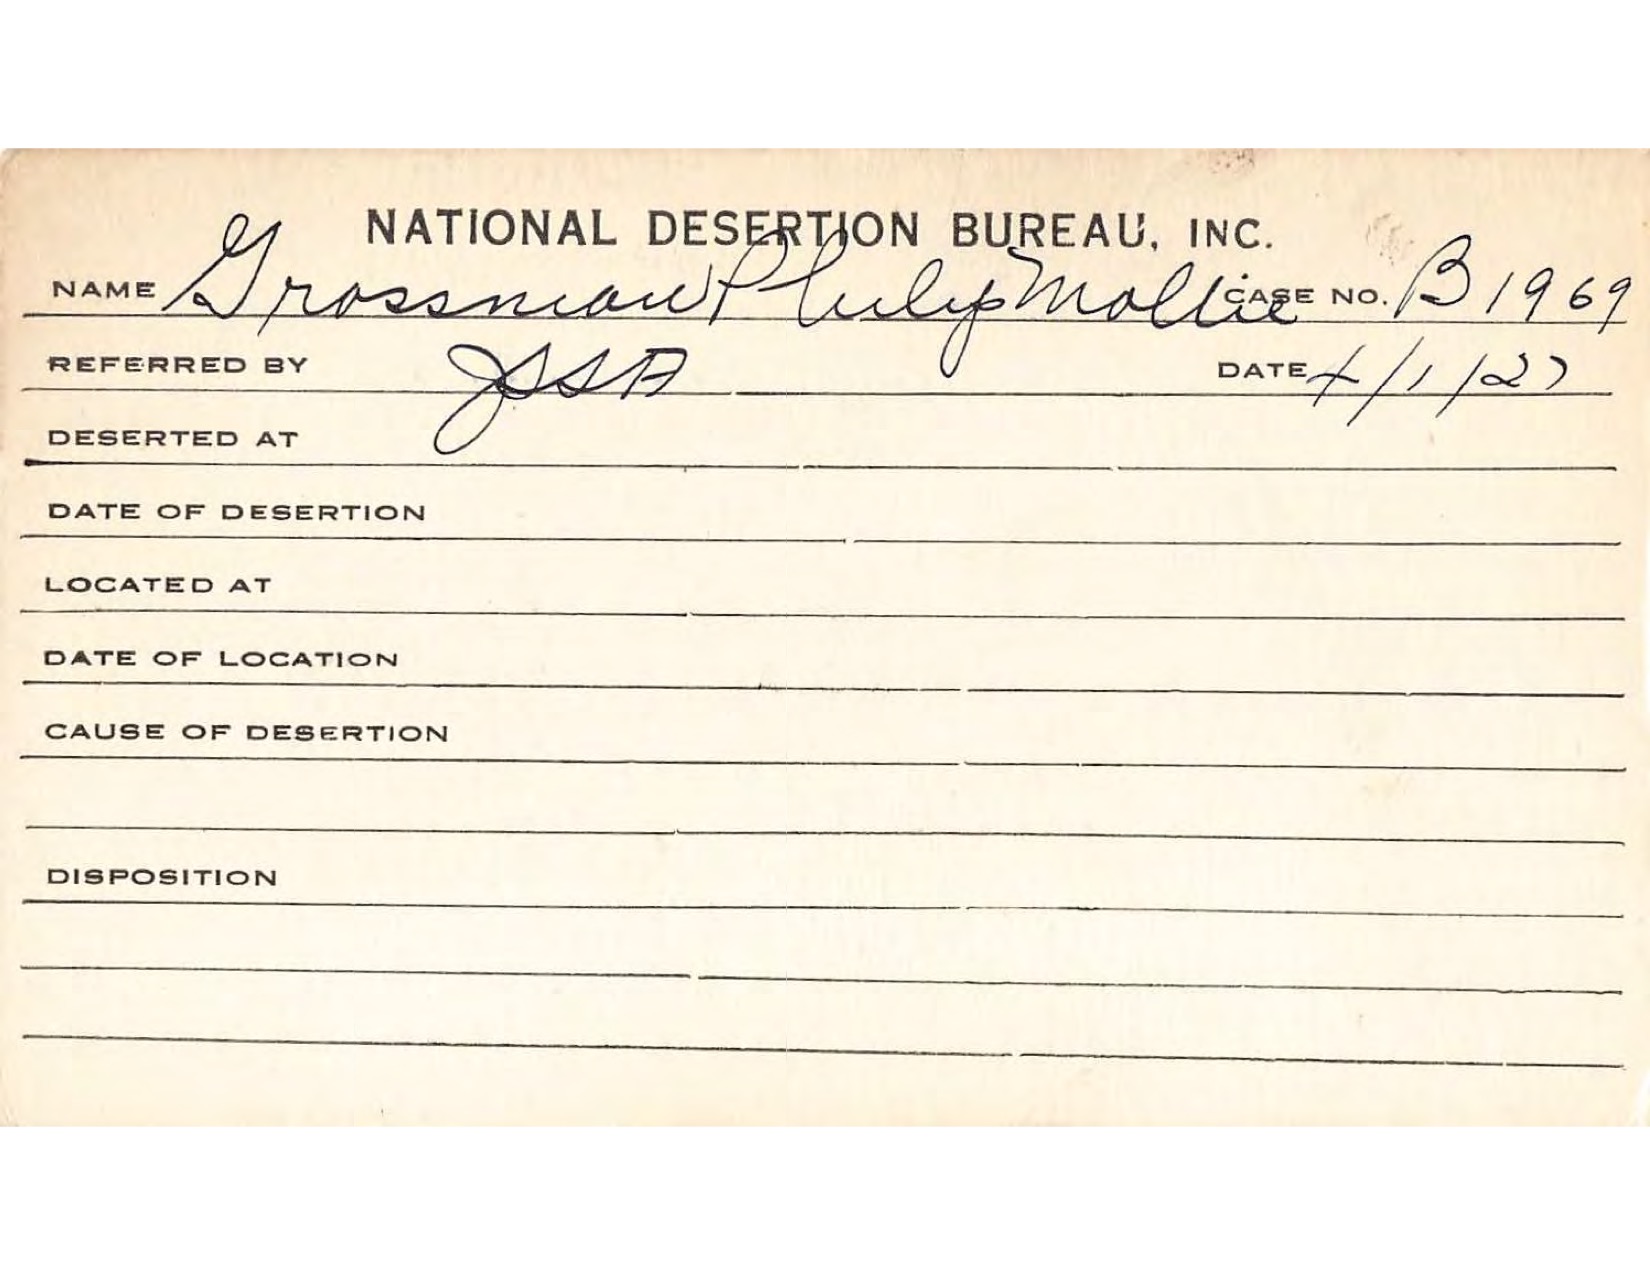 NATIONAL DESERTION BUREAU, INC.
NAME Grossman Philip Mollie CASE NO. B1969
REFERRED BY JSSA DATE 4/1/27
DESERTED AT
DATE OF DESERTION
LOCATED AT
DATE OF LOCATION
CAUSE OF DESERTION
DISPOSITION